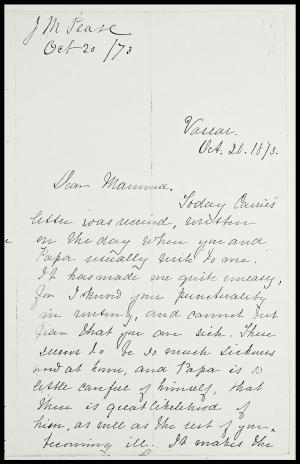 J M Pease
Oct 20 /73
Vassar.
Oct. 20. 1873.
Dear Mamma.
Today Carrie's
letter was received, written
on the day when you and
Papa usually write to me.
It has made me quite uneasy,
for I know your punctuality
in writing, and cannot but
fear that you are sick. There
seems to be so much sickness
at home, and Papa is so
little careful of himself, that
there is great likelihood of
him, as well as the rest of you
becoming ill. It makes the